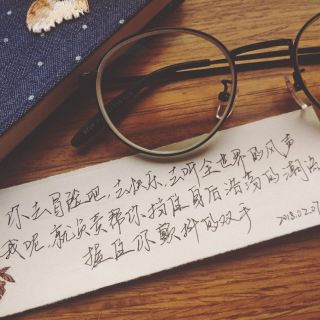 你去冒险吧,去快乐,去听全世界的风声
我呢,就负责帮你挡住身后浩荡的潮汐
握住你颤抖的双手
2018.02.07